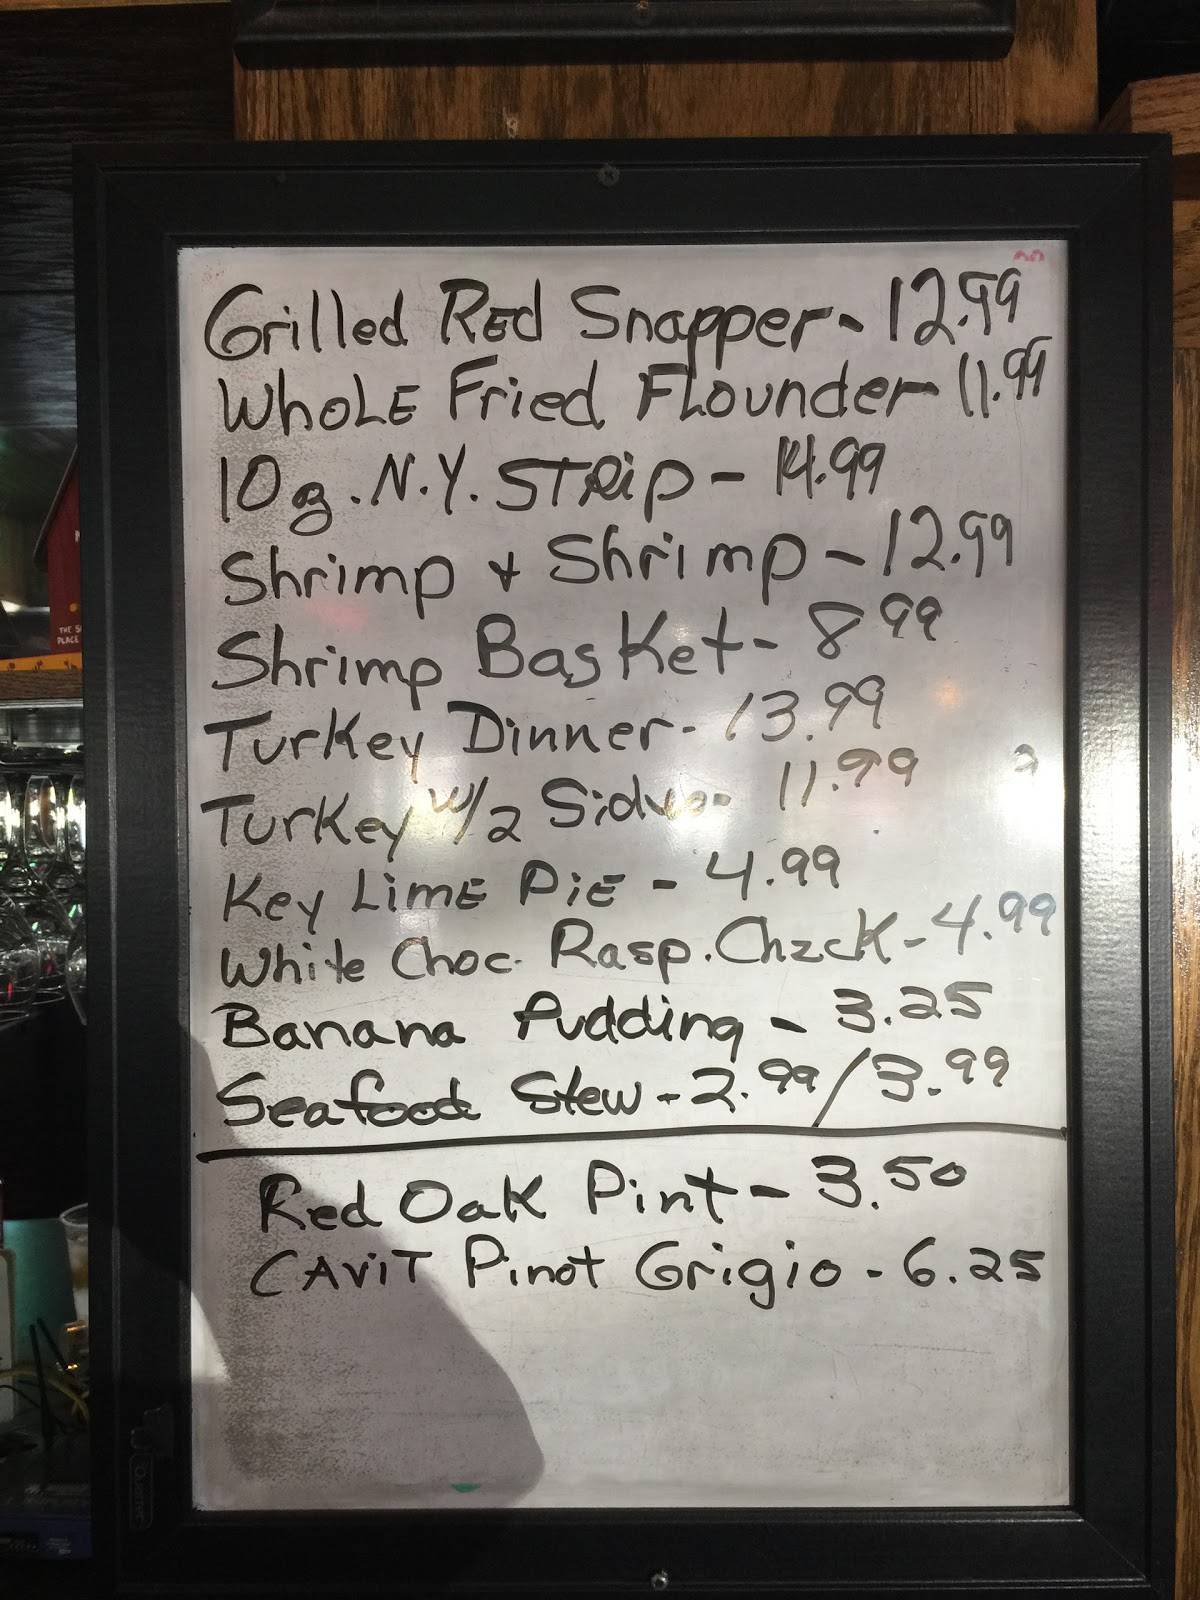 Grilled Red Snapper - 12.99
Whole Fried Flounder - 11.99
10 oz. N.Y. Strip - 14.99
Shrimp + Shrimp - 12.99
Shrimp Basket - 8.99
Turkey Dinner - 13.99
Turkey w/2 Sides - 11.99
Key Lime Pie - 4.99
White Choc. Rasp. Chzck - 4.99
Banana Pudding - 3.25
Seafood Stew - 2.99/3.99
Red Oak Pint - 3.50
CAViT Pinot Grigio - 6.25
Quartet